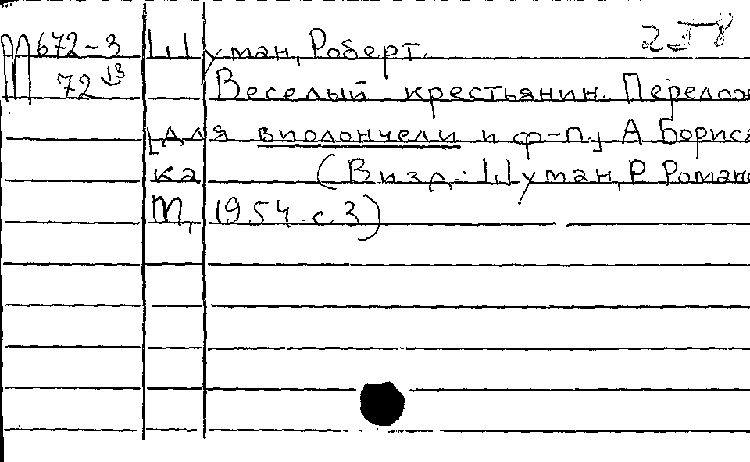 М672-3 Шуман, Роберт. 258
72 Веселый крестьянин. Перелож
[для виолончели и ф-п.] А Борися
ка (В изд.: Шуман, Р Романс
М, 1954 с. 3)